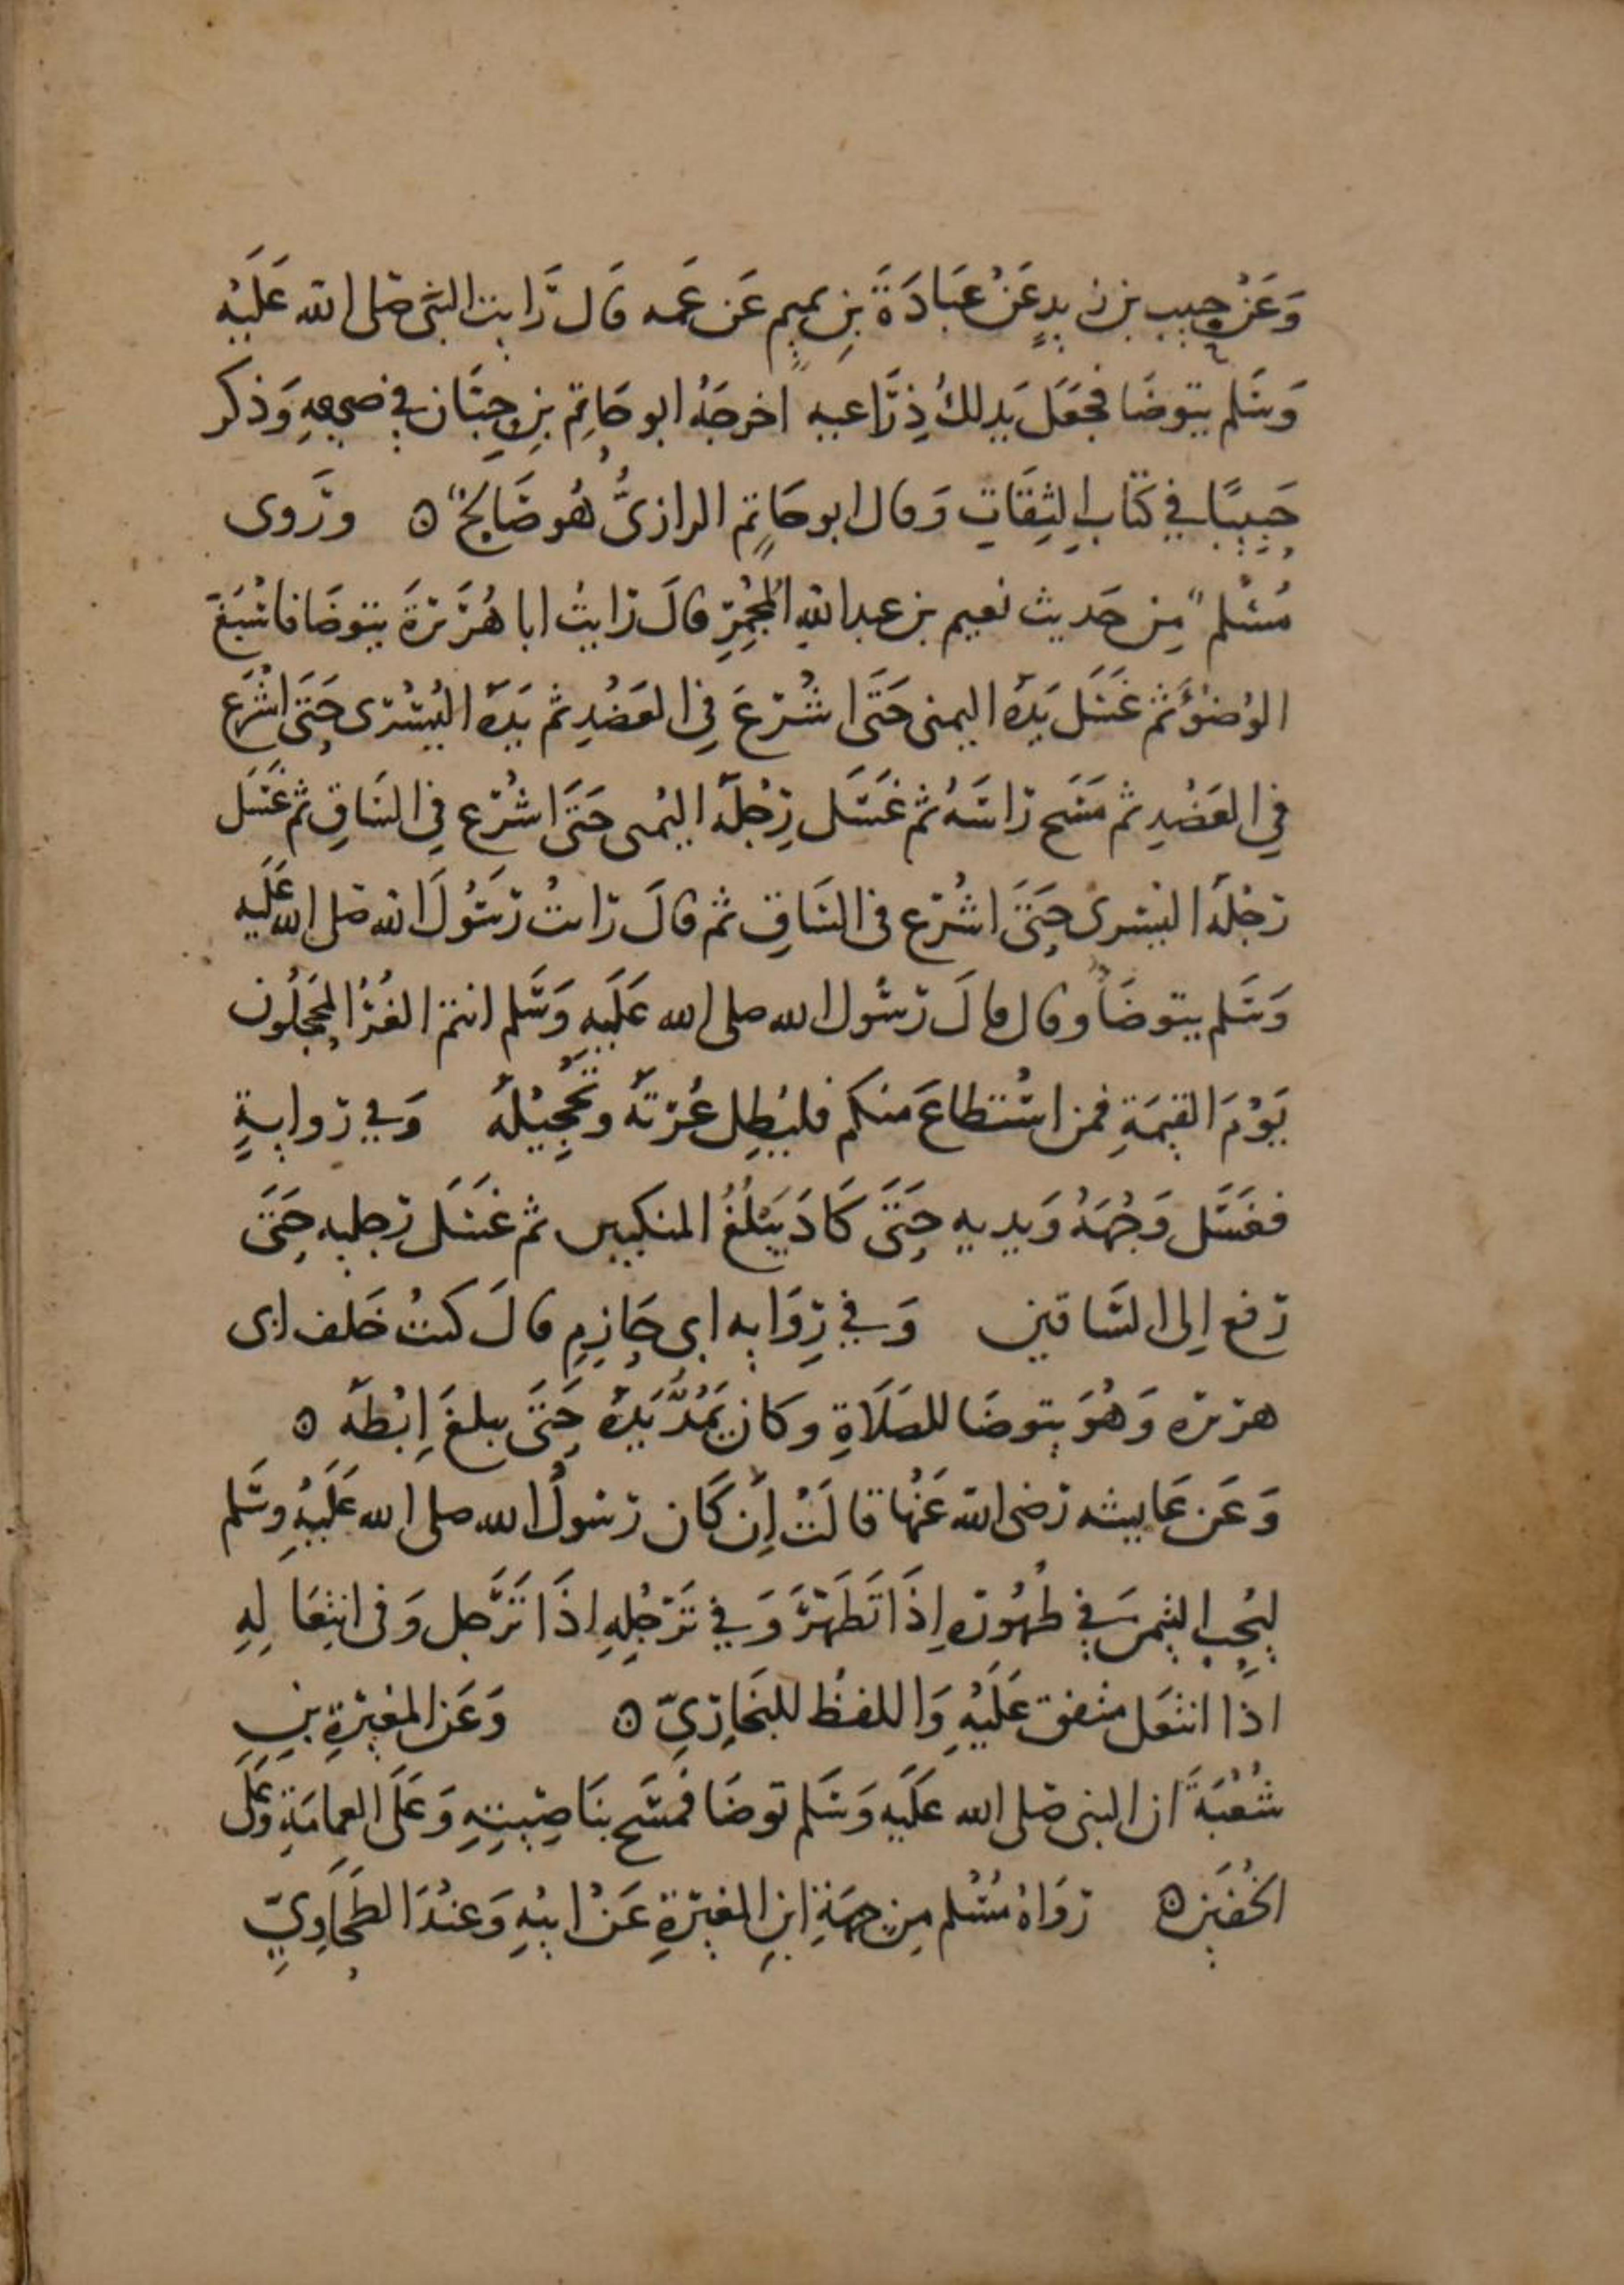 وَعَنْ حبيب بن زيدٍ عَنْ عَبَادَةَ بنِ تميمٍ عَن عَمه قَال رَايت النبي صَلى الله عَلَيْهِ
وَسَلم يتوضَا فجَعَلَ يَدلكُ ذِرَاعيه اخرجَهُ ابو حَاتِم بنِ حِبَّان في صحيحهِ وَذكر
حَبِيبًا في كتَابِ الثِقَاتِ وَقال ابو حَاتِم الرازيُّ هُو صَالحٌ ۞ ورَوى
مُسْلم مِن حَديث نعيم بن عبد اللهِ المُجْمِرِ قالَ رَايتُ ابا هُرَيْرَةَ يتوضَا فاسْبَغَ
الوُضوْءَ ثم غَسَل يَدَهُ اليمنى حَتَى اشْرَعَ فِي العَضُدِ ثم يَدَهُ اليُسْرى حَتَى اشْرَع
في العَضُدِ ثم مَسَح رَاسَهُ ثم غَسَل رِجْلَهُ اليُمنى حَتَى اشْرَع فِي السَاقِ ثم غَسَل
رجْلَهُ اليُسرى حَتَى اشْرَع في السَاقِ ثم قالَ رَايتُ رَسُولَ الله صَلى الله عَلَيه
وَسَلم يتوضَأُ وقال قالَ رَسُول الله صلى الله عَلَيهِ وَسَلم انتم الغُرُّ المُحَجَلُون
يَوْمَ القيمَةِ فمن اسْتطاعَ منكم فليُطِل غُرتَهُ وتَحْجِيْلَهُ وَفي روايةٍ
فغَسَل وَجْهَهُ وَيديهِ حَتَى كَادَ يَبْلُغُ المنكبين ثم غَسَلَ رجليه حَتَى
رَفع اِلى السَاقين وَفي رِوَايهِ ابى حَازِمٍ قالَ كنتُ خَلف ابى
هريره وَهُوَ يتوضَا للصَلَاةِ وكان يَمُدُّ يَدَهُ حَتَى يبلغَ اِبْطَهُ ۞
وَعَن عَايشه رَضي الله عَنْها قالَتْ اِن كَان رسُولُ الله صلى الله عَلَيْهِ وسَلم
ليُحِب التيمن في طُهُوره اِذَا تَطَهَّرَ وَفي تَرَجُلِهِ اذَا تَرَجل وَفى انتِعَالِهِ
اذا انتعَل متفق عَلَيْهِ وَاللفظ للبخَارِيّ ۞ وَعَن المغيرةِ بنِ
شُعْبَةَ ان النبى صَلى الله عَلَيهِ وَسَلم توضَا فمَسَح بنَاصِيتِهِ وَعَلَى العِمامَةِ وَعَلَى
الخُفَين ۞ رَوَاهُ مُسْلم مِن جهَةِ ابنِ المغيرَةِ عَنْ ابيْهِ وَعنْدَ الطَحَاوِيّ